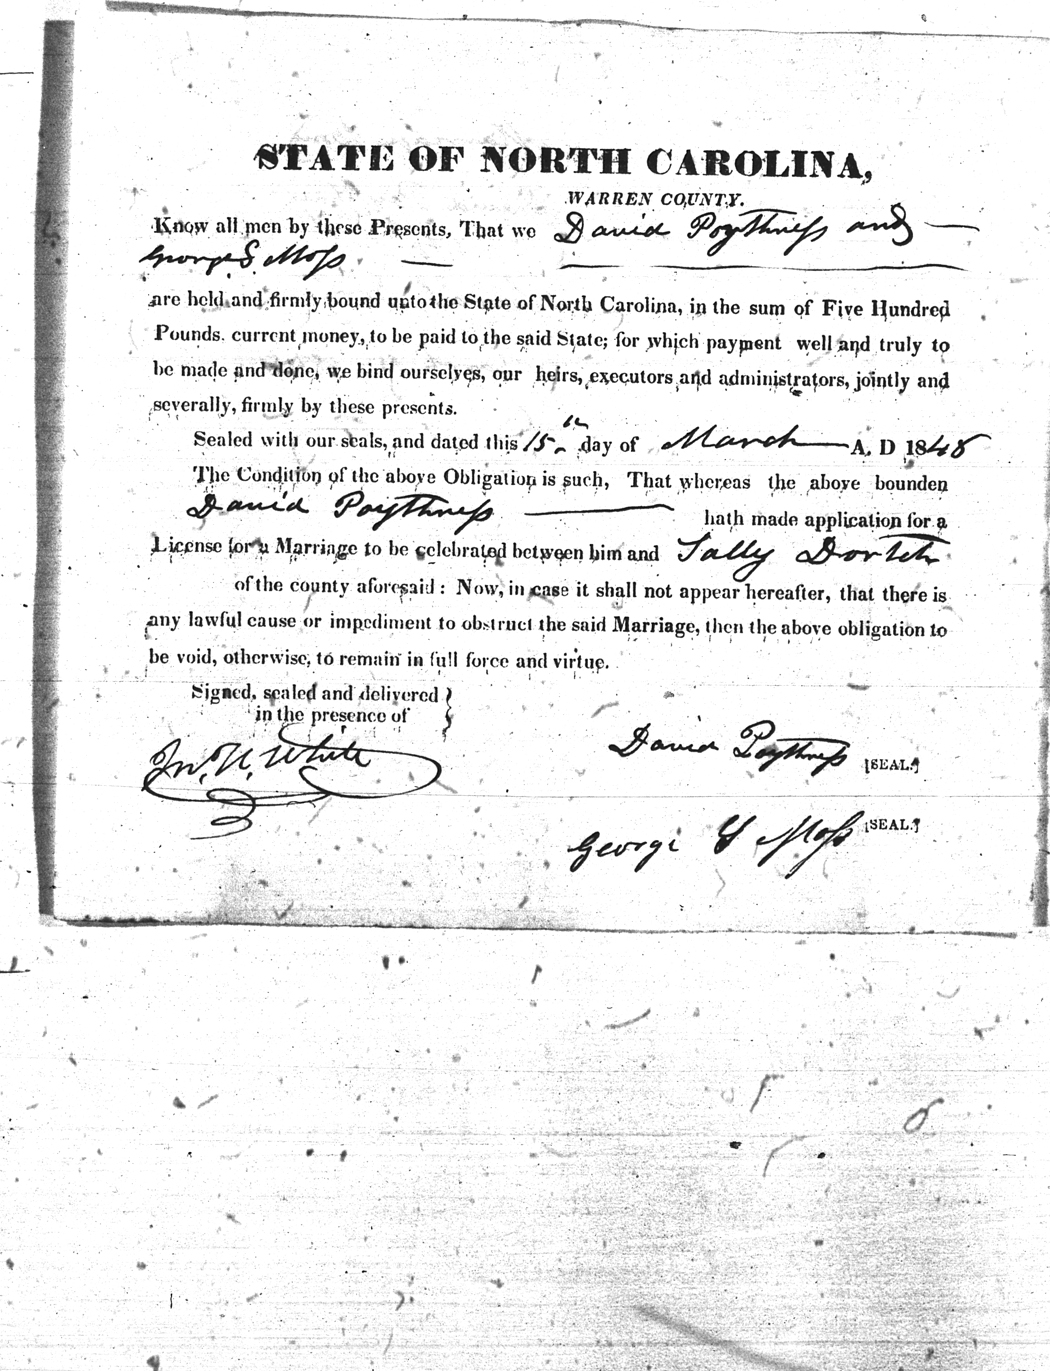 STATE OF NORTH CAROLINA,
WARREN COUNTY.
Know all men by these Presents, That we David Poythress and
George S. Moss
are held and firmly bound unto the State of North Carolina, in the sum of Five Hundred
Pounds. current money, to be paid to the said State; for which payment well and truly to
be made and done, we bind ourselves, our heirs, executors and administrators, jointly and
severally, firmly by these presents.
Sealed with our seals, and dated this 15th day of March A. D 1848
The Condition of the above Obligation is such, That whereas the above bounden
David Poythress hath made application for a
License for a Marriage to be celebrated between him and Sally Dortch
of the county aforesaid: Now, in case it shall not appear hereafter, that there is
any lawful cause or impediment to obstruct the said Marriage, then the above obligation to
be void, otherwise, to remain in full force and virtue.
Signed, sealed and delivered
in the presence of
Jno. W. White
David Poythress [SEAL.]
George S Moss [SEAL.]